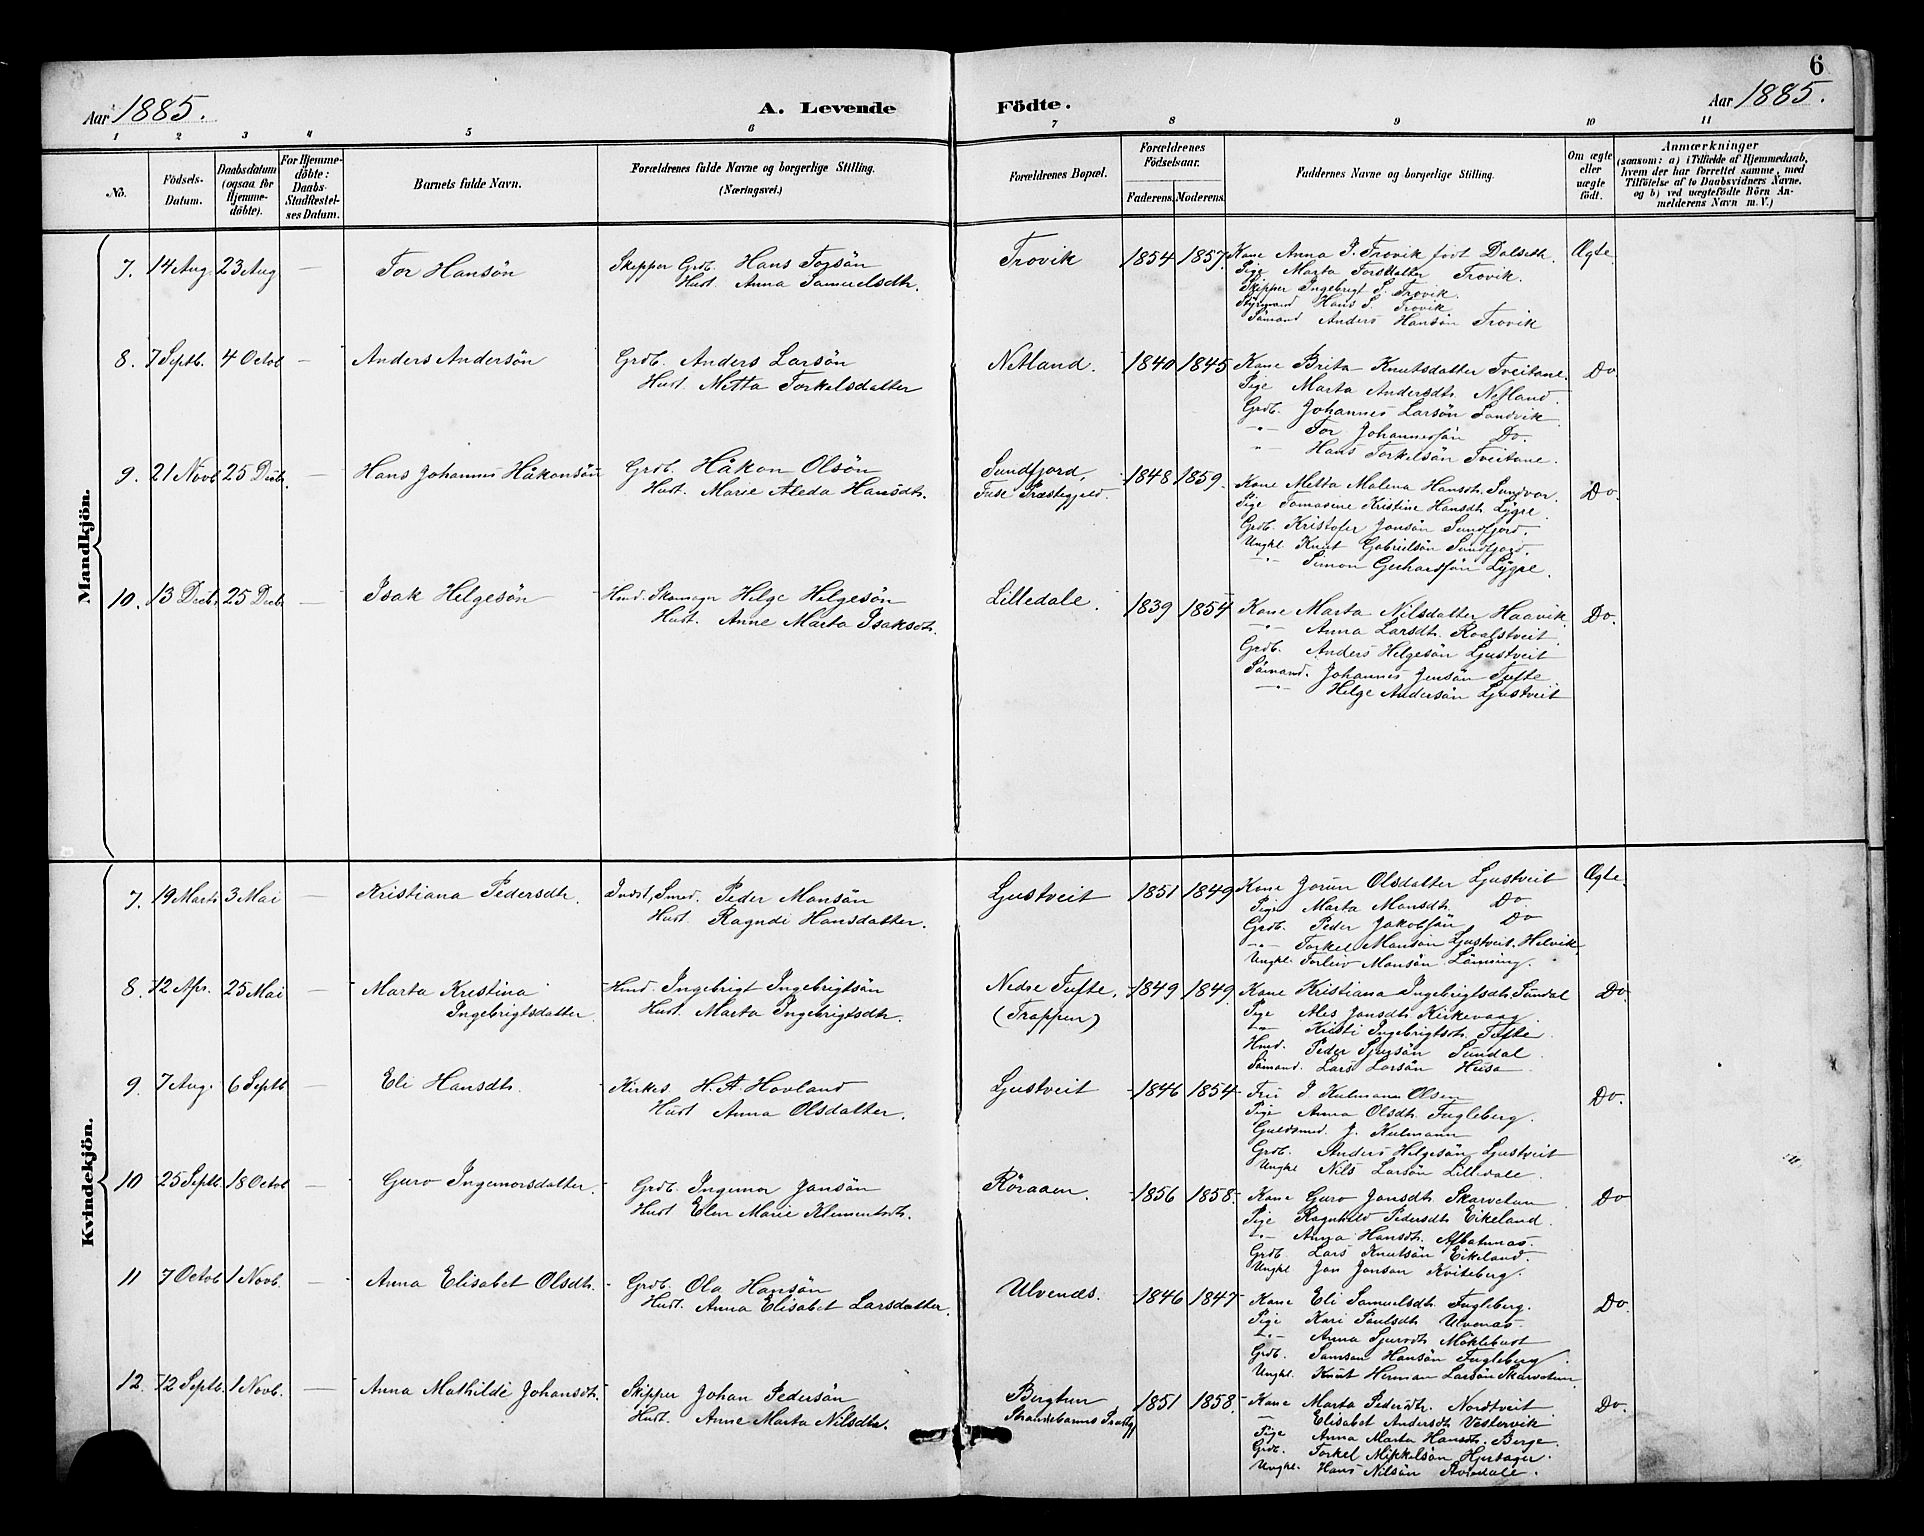 6
Aar 1885.
A. Levende Födte.
Aar 1885.
1 2 3 4 5 6 7 8 9 10 11
No.
Födsels-
Datum.
Daabsdatum
(ogsaa for
Hjemme-
döbte).
For Hjemme-
döbte:
Daabs-
Stadfæstel-
ses Datum.
Barnets fulde Navn.
Forældrenes fulde Navne og borgerlige Stilling.
(Næringsvei.)
Forældrenes Bopæl.
Forældrenes
Födselsaar.
Faderens. Moderens.
Faddernes Navne og borgerlige Stilling.
Om ægte
eller
uægte
födt.
Anmærkninger
(saasom: a) i Tilfælde af Hjemmedaab,
hvem der har forrettet samme, med
Tilföielse af to Daabsvidners Navne,
og b) ved uægtefödte Börn An-
melderens Navn m. V.)
Mandkjön.
7. 14 Aug. 23 Aug — Tor Hansön
Skipper Grdb. Hans Torsön
Hust. Anna Samuelsdtr.
Trovik 1854 1857.
Kone Anna P. Trovik født Dalseth.
Pige Marta Torsdatter Trovik.
Skipper Ingebrigt S. Trovik.
Styrmand Hans S. Trovik
Sömand Anders Hansön Trovik
Ægte.
8. 7 Septb. 4 Octob — Anders Andersön
Grdb. Anders Larsön
Hust. Metta Torkelsdatter
Netland. 1840 1845
Kone Brita Knutsdatter Tveitane.
Pige Marta Andersdtr. Netland.
Grdb. Johannes Larsön Sandvik
—"— Tor Johannessön Do.
" Hans Torkelsön Tveitane.
Do.
9. 21 Novb 25 Decb. — Hans Johannes Håkonsön
Grdb. Håkon Olsön
Hust. Marie Aleda Hansdtr.
Sundfjord,
Fuse Præstegjeld. 1848 1859.
Kone Metta Malena Hansdtr. Sundvor.
Pige Tomasine Kristine Hansdtr. Lygre.
Grdb. Kristofer Jonsön Sundfjord.
Ungkl. Knut Gabrielsön Sundfjord.
—"— Simon Gerhardsön Lygre.
Do.
10. 13 Decb. 25 Decb — Isak Helgesön
Hmd. Skomager Helge Helgesön
Hust. Anne Marta Isaksdtr.
Lilledale. 1839 1854
Kone Marta Nilsdatter Haavik.
—"— Anna Larsdtr. Roalstveit
Grdb. Anders Helgesön Ljustveit
Sömand. Johannes Jensön Tufte
—"— Helge Andersön Ljustveit
Do.
Kvindekjön.
7. 19 Marts 3 Mai — Kristiana Pedersdtr.
Indst, Smed. Peder Monsön
Hust. Ragndi Hansdatter.
Ljustveit 1851 1849
Kone Jorun Olsdatter Ljustveit
Pige Marta Monsdtr. Do
Grdb. Peder Jakobsön Do
—"— Torkel Monsön Ljustveit. Helvik
Ungkl. Torleiv Monsön Lönning.
Ægte.
8. 12 Apr. 25 Mai — Marta Kristina
Ingebrigtsdatter.
Hmd. Ingebrigt Ingebrigtsön
Hust. Marta Ingebrigtsdtr.
Nedre Tufte,
(Trappen) 1849 1849
Kone Kristiana Ingebrigtsdtr. Sundal
Pige Ales Jonsdtr. Kirkevaag.
—"— Kristi Ingebrigtsdtr. Tufte.
Hmd. Peder Sjursön Sundal.
Sömand. Lars Larsön Heisa.
Do.
9. 7 Aug. 6 Septb — Eli Hansdtr.
Kirkes. H. A. Hovland
Hust Anna Olsdatter.
Ljustveit 1846 1854
Fru P. Kulmann Olsen
Pige Anna Olsdtr. Fugleberg.
Guldsmed. J. Kulmann
Grdb. Anders Helgesön Ljustveit
Ungkl Nils Larsön Lilledale.
Do.
10 25 Septb. 18 Octob — Guro Ingemorsdatter.
Grdb. Ingemor Jonsön
Hust Elen Marie Klementsdtr.
Röraaen. 1856 1858.
Kone Guro Jonsdtr. Skarvetun
Pige Ragnhild Pedersdtr. Eikeland.
—"— Anna Hansdtr.
Grdb. Lars Knutsön Eikeland.
Ungkl Jon Jonsön Kviteberg.
Do
11 7 Octob. 1 Novb. — Anna Elisabet Olsdtr.
Grdb. Ola Hansön
Hust. Anna Elisabet Larsdatter.
Ulvenæs. 1846 1847
Kone Eli Samuelsdtr. Fugleberg.
Pige Kari Paulsdtr Ulvenæs.
—"— Anna Sjursdtr Möklebust
Grdb. Samson Hansön Fugleberg.
Ungkl. Knut Herman Larsön Skarvetun
Do.
12. 12 Septb. 1 Novb. — Anna Mathilde Johansdtr.
Skipper Johan Pedersön
Hust. Anne Marta Nilsdtr.
Bergtun
Strandebarms Prstgj 1851 1858.
Kone Marta Pedersdtr. Nordtveit
— Elisabet Andersdtr. Vestervik
Pige Anna Marta Hansdtr. Berge.
Grdb. Torkel Mikkelsön Hjertager.
Ungkl. Hans Nilsön
Do.